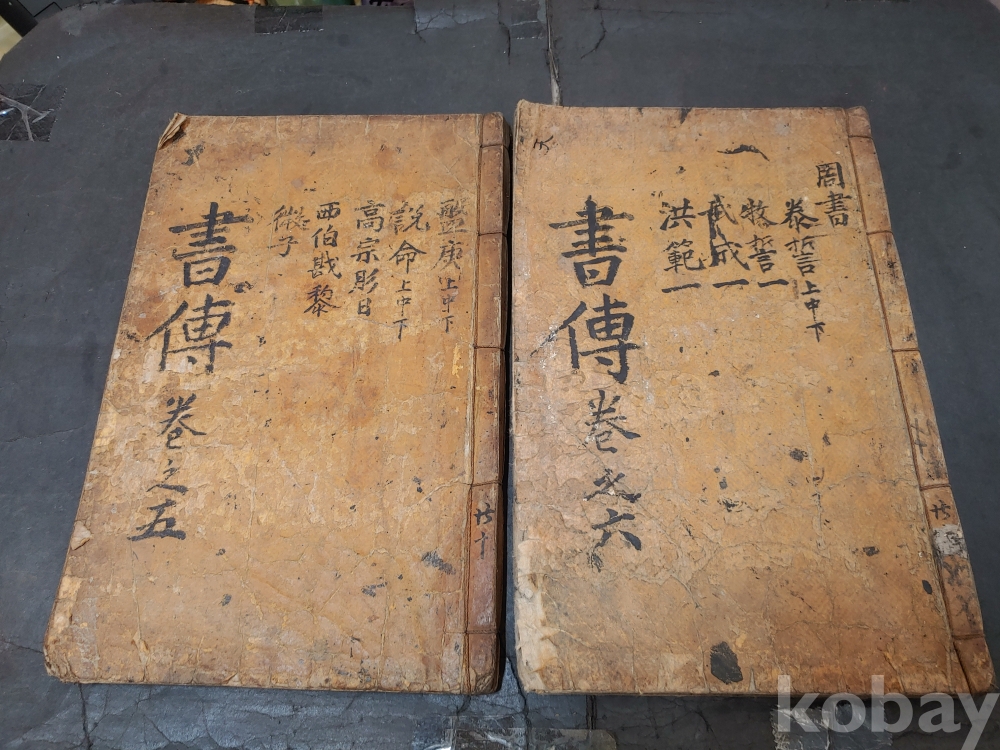 盤庚上中下
說命上中下
高宗肜日
西伯戡黎
微子
書傳卷之五
共十
周書
泰誓上中下
牧誓一
武成一
洪範一
書傳卷之六
kobay